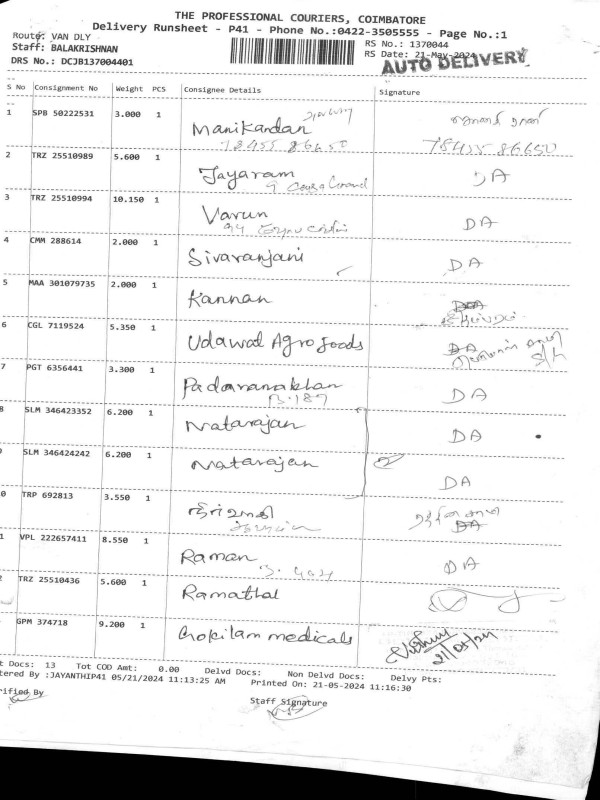 THE PROFESSIONAL COURIERS, COIMBATORE
Delivery Runsheet - P41 - Phone No.:0422-3505555 - Page No.:1
Route: VAN DLY
RS No.: 1370044
Staff: BALAKRISHNAN
RS Date: 21-May-2024
DRS No.: DCJB137004401
AUTO DELIVERY
S No Consignment No Weight PCS Consignee Details Signature
1 SPB 50222531 3.000 1 Manikandan
78455 86650 78455 86650
2 TRZ 25510989 5.600 1 Jayaram DA
3 TRZ 25510994 10.150 1 Varun DA
94
4 CMM 288614 2.000 1 Sivaranjani DA
5 MAA 301079735 2.000 1 Kannan DA
6 CGL 7119524 5.350 1 Udawal Agro foods DA
7 PGT 6356441 3.300 1 Padavanakhan DA
B.187
8 SLM 346423352 6.200 1 Natarajan DA
SLM 346424242 6.200 1 Natarajan DA
0 TRP 692813 3.550 1 DA
1 VPL 222657411 8.550 1 Raman DA
2 TRZ 25510436 5.600 1 Ramathal
GPM 374718 9.200 1 Gokilam medicals
21/05/24
t Docs: 13 Tot COD Amt: 0.00 Delvd Docs: Non Delvd Docs: Delvy Pts:
tered By :JAYANTHIP41 05/21/2024 11:13:25 AM Printed On: 21-05-2024 11:16:30
rified By
Staff Signature